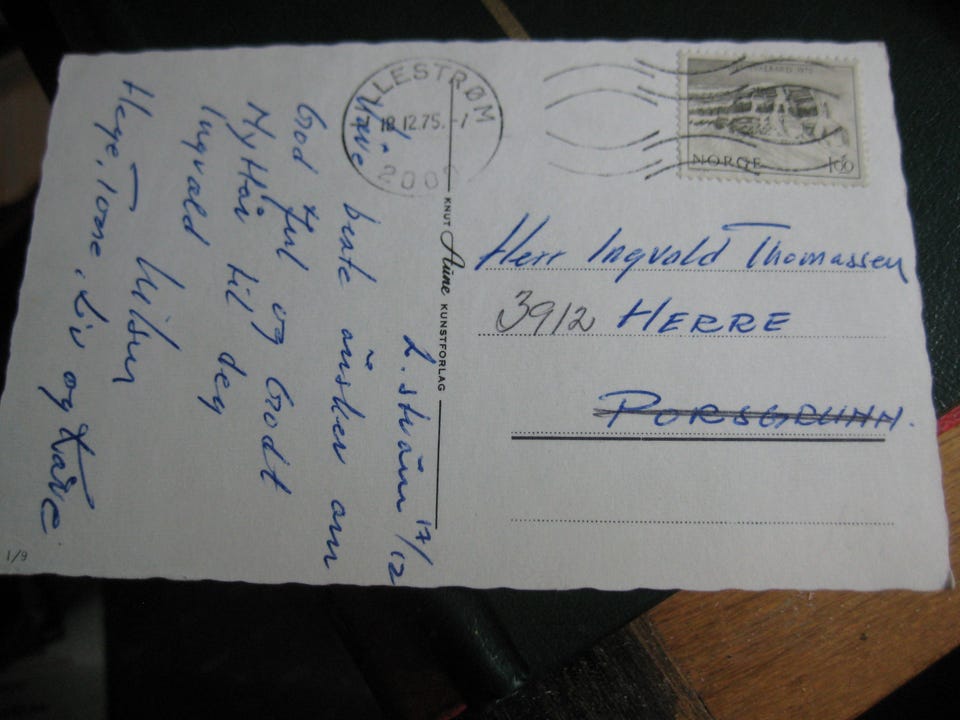 L.strøm 17/12
Våre beste ønsker om
God Jul og Godt
Nyttår til deg
Ingvald
Hilsen
Hege, Tone, Liv og Kåre
1/9
KNUT Aune KUNSTFORLAG
LLESTRØM
18.12.75.-7
200
NORGE 100
Herr Ingvald Thomassen
3912 HERRE
PORSGRUNN.